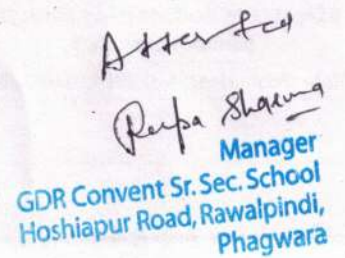 Attested
Rupa Sharma
Manager
GDR Convent Sr. Sec. School
Hoshiapur Road, Rawalpindi,
Phagwara